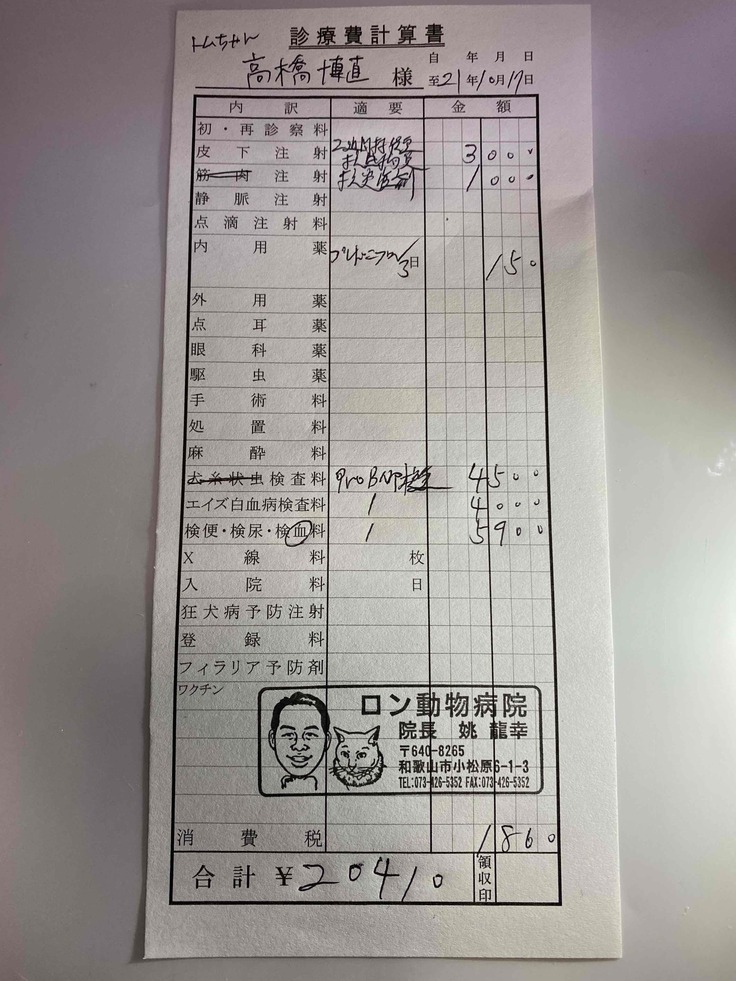 トムちゃん
診療費計算書
高橋博直 様
自 年 月 日
至21年10月17日
内訳 適要 金額
初・再診察料
皮下注射 3000
抗生物質
筋肉注射 抗炎症剤 1000
静脈注射
点滴注射料
内用薬 プレドニゾロン 3日 150
外用薬
点耳薬
眼科薬
駆虫薬
手術料
処置料
麻酔料
犬糸状虫検査料 ProBNP検査 4500
エイズ白血病検査料 1 4000
検便・検尿・検血料 1 5900
X線料 枚
入院料 日
狂犬病予防注射
登録料
フィラリア予防剤
ワクチン
ロン動物病院
院長 姚 龍幸
〒640-8265
和歌山市小松原6-1-3
TEL:073-426-5352 FAX:073-426-5352
消費税 1860
合計 ¥20410 領収印